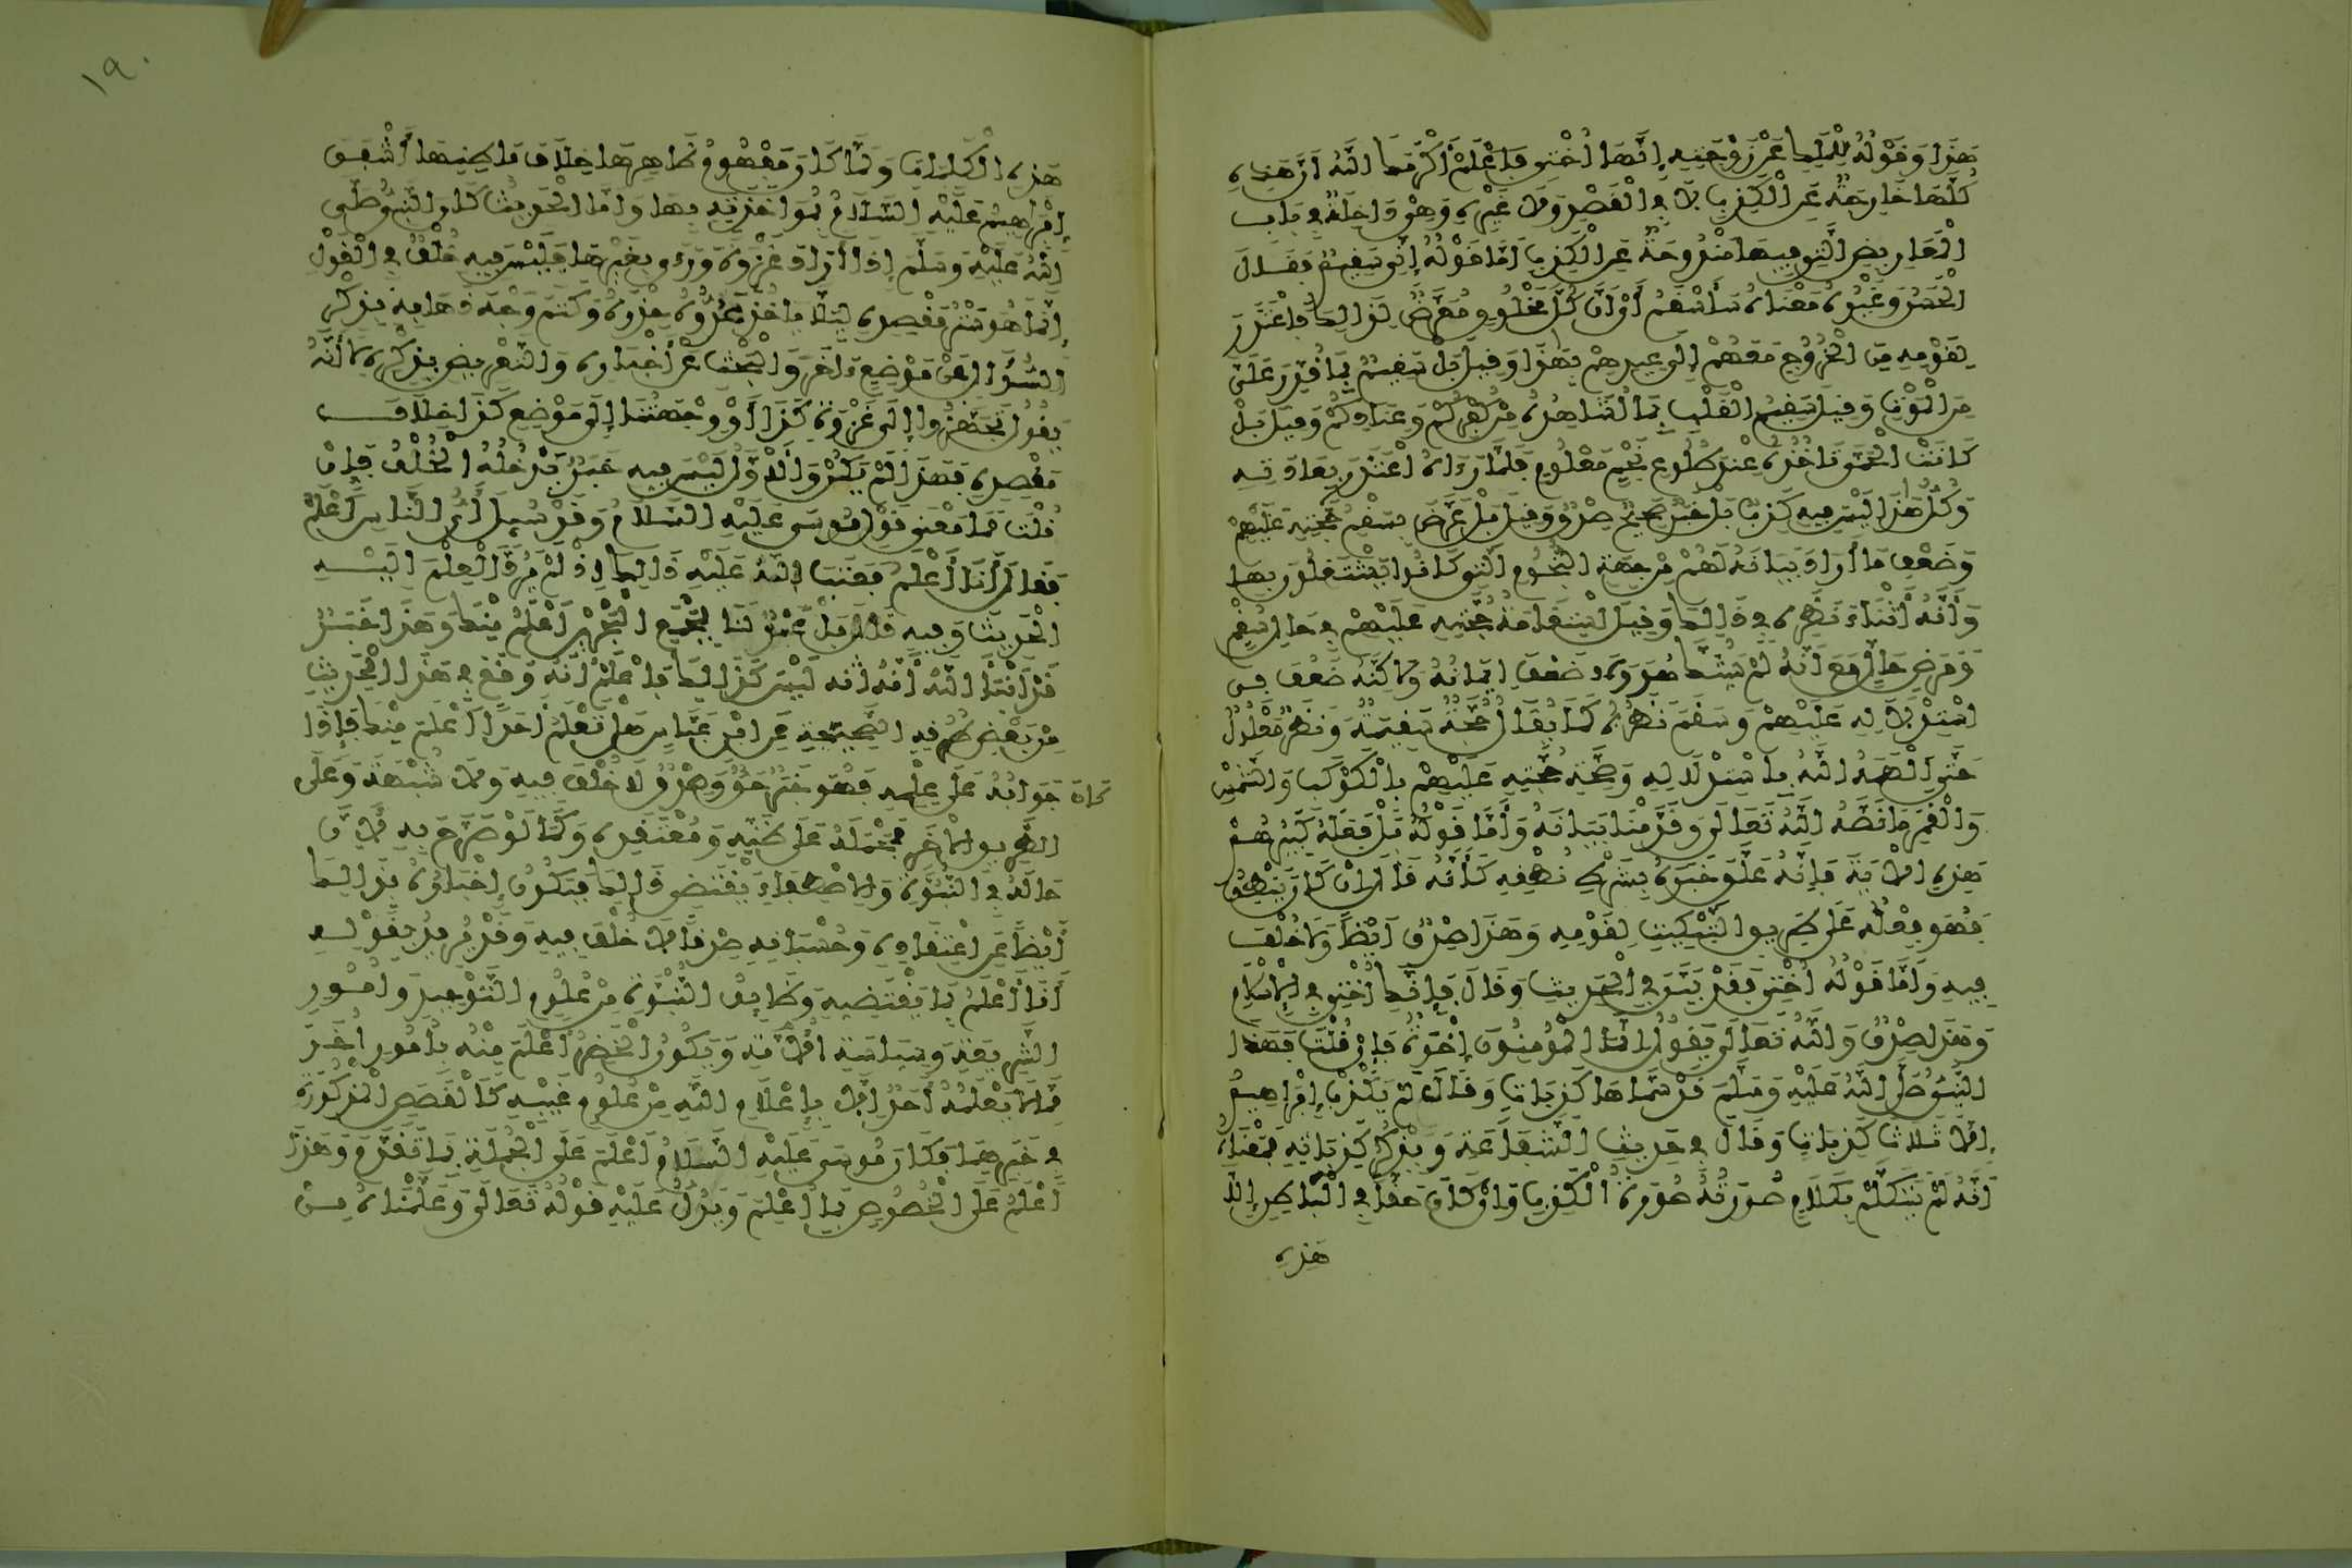 هَذَا وَقَوْلُهُ لِلْمَلِكِ عَنْ زَوْجَتِهِ إِنَّهَا أُخْتِي فَاعْلَمْ أَكْرَمَكَ اللَّهُ أَنَّ هَذِهِ
كُلَّهَا خَارِجَةٌ عَنِ الْكَذِبِ لَا فِي الْقَصْدِ وَلَا غَيْرِهِ وَهِيَ دَاخِلَةٌ فِي بَابِ
الْمَعَارِيضِ الَّتِي فِيهَا مَنْدُوحَةٌ عَنِ الْكَذِبِ أَمَّا قَوْلُهُ إِنِّي سَقِيمٌ فَقَالَ
الْحَسَنُ وَغَيْرُهُ مَعْنَاهُ سَأَسْقَمُ أَوْ أَنَّ كُلَّ مَخْلُوقٍ مُعَرَّضٌ لِذَلِكَ فَاعْتَذَرَ
لِقَوْمِهِ مِنَ الْخُرُوجِ مَعَهُمْ إِلَى عِيدِهِمْ بِهَذَا وَقِيلَ بَلْ سَقِيمٌ بِمَا قُدِّرَ عَلَيَّ
مِنَ الْمَوْتِ وَقِيلَ سَقِيمُ الْقَلْبِ بِمَا أُشَاهِدُهُ مِنْ كُفْرِكُمْ وَعِنَادِكُمْ وَقِيلَ بَلْ
كَانَتِ الْحُمَّى تَأْخُذُهُ عِنْدَ طُلُوعِ نَجْمٍ مَعْلُومٍ فَلَمَّا رَءَاهُ اعْتَذَرَ بِعَادَتِهِ
وَكُلُّ هَذَا لَيْسَ فِيهِ كَذِبٌ بَلْ خَبَرٌ صَحِيحٌ صِدْقٌ وَقِيلَ بَلْ عَرَّضَ بِسَقَمِ حُجَّتِهِ عَلَيْهِمْ
وَضَعْفِ مَا أَرَادَ بَيَانَهُ لَهُمْ مِنْ جِهَةِ النُّجُومِ الَّتِي كَانُوا يَشْتَغِلُونَ بِهَا
وَأَنَّهُ أَثْنَاءَ نَظَرِهِ فِي ذَلِكَ وَقَبْلَ اسْتِقَامَةِ حُجَّتِهِ عَلَيْهِمْ فِي حَالِ سُقْمٍ
وَمَرَضِ حَالٍ مَعَ أَنَّهُ لَمْ يَشُكَّ هُوَ وَلَا ضَعُفَ إِيمَانُهُ وَلَكِنَّهُ ضَعُفَ فِي
اسْتِدْلَالِهِ عَلَيْهِمْ وَسَقَمَ نَظَرُهُ كَمَا يُقَالُ حُجَّةٌ سَقِيمَةٌ وَنَظَرٌ مَعْلُولٌ
حَتَّى أَلْهَمَهُ اللَّهُ بِاسْتِدْلَالِهِ وَصِحَّةِ حُجَّتِهِ عَلَيْهِمْ بِالْكَوْكَبِ وَالشَّمْسِ
وَالْقَمَرِ مَا نَصَّهُ اللَّهُ تَعَالَى وَقَدَّمْنَا بَيَانَهُ وَأَمَّا قَوْلُهُ بَلْ فَعَلَهُ كَبِيرُهُمْ
هَذَا الْآيَةَ فَإِنَّهُ عَلَّقَ خَبَرَهُ بِشَرْطِ نُطْقِهِ كَأَنَّهُ قَالَ إِنْ كَانَ يَنْطِقُ
فَهُوَ فِعْلُهُ عَلَى طَرِيقِ التَّبْكِيتِ لِقَوْمِهِ وَهَذَا صِدْقٌ أَيْضًا وَلَا خُلْفَ
فِيهِ وَأَمَّا قَوْلُهُ أُخْتِي فَقَدْ بَيَّنَ فِي الْحَدِيثِ وَقَالَ فَإِنَّكِ أُخْتِي فِي الْإِسْلَامِ
وَهُوَ صِدْقٌ وَاللَّهُ تَعَالَى يَقُولُ إِنَّمَا الْمُؤْمِنُونَ إِخْوَةٌ فَإِنْ قُلْتَ فَهَذَا
النَّبِيُّ صَلَّى اللَّهُ عَلَيْهِ وَسَلَّمَ قَدْ سَمَّاهَا كَذِبَاتٍ وَقَالَ لَمْ يَكْذِبْ إِبْرَاهِيمُ
إِلَّا ثَلَاثَ كَذِبَاتٍ وَقَالَ فِي حَدِيثِ الشَّفَاعَةِ وَيَذْكُرُ كَذِبَاتِهِ فَمَعْنَاهُ
أَنَّهُ لَمْ يَتَكَلَّمْ بِكَلَامٍ صُورَتُهُ صُورَةُ الْكَذِبِ وَإِنْ كَانَ حَقًّا فِي الْبَاطِنِ إِلَّا
هَذِهِ
١٩٠
هَذِهِ الْكَلِمَاتِ وَلَمَّا كَانَ مَفْهُومُ ظَاهِرِهَا خِلَافَ بَاطِنِهَا أَشْفَقَ
إِبْرَاهِيمُ عَلَيْهِ السَّلَامُ بِمُوَاخَذَتِهِ بِهَا وَأَمَّا الْحَدِيثُ كَانَ النَّبِيُّ صَلَّى
اللَّهُ عَلَيْهِ وَسَلَّمَ إِذَا أَرَادَ غَزْوَةً وَرَّى بِغَيْرِهَا فَلَيْسَ فِيهِ خُلْفٌ فِي الْقَوْلِ
إِنَّمَا هُوَ سَتْرُ مَقْصِدِهِ لِيَلَّا يَأْخُذَ عَدُوُّهُ حِذْرَهُ وَكَتَمَ وَجْهَ ذَهَابِهِ بِذِكْرِ
السُّؤَالِ عَنْ مَوْضِعٍ ءَاخَرَ وَالْبَحْثِ عَنْ أَخْبَارِهِ وَالتَّعْرِيضِ بِذِكْرِهِ لَا أَنَّهُ
يَقُولُ تَجَهَّزُوا إِلَى غَزْوَةِ كَذَا أَوْ وِجْهَتُنَا إِلَى مَوْضِعِ كَذَا خِلَافَ
مَقْصِدِهِ فَهَذَا لَمْ يَكُنْ وَالْأَوَّلُ لَيْسَ فِيهِ خَبَرٌ يَدْخُلُهُ الْخُلْفُ فَإِنْ
قُلْتَ فَمَا مَعْنَى قَوْلِ مُوسَى عَلَيْهِ السَّلَامُ وَقَدْ سُئِلَ أَيُّ النَّاسِ أَعْلَمُ
فَقَالَ أَنَا أَعْلَمُ فَعَتَبَ اللَّهُ عَلَيْهِ ذَلِكَ إِذْ لَمْ يَرُدَّ الْعِلْمَ إِلَيْهِ
الْحَدِيثَ وَفِيهِ قَالَ بَلْ عَبْدٌ لَنَا بِمَجْمَعِ الْبَحْرَيْنِ أَعْلَمُ مِنْكَ وَهَذَا خَبَرٌ
قَدْ أَنْبَأَ اللَّهُ أَنَّهُ لَيْسَ كَذَلِكَ فَاعْلَمْ أَنَّهُ وَقَعَ فِي هَذَا الْحَدِيثِ
مِنْ بَعْضِ طُرُقِهِ الصَّحِيحَةِ عَنِ ابْنِ عَبَّاسٍ هَلْ تَعْلَمُ أَحَدًا أَعْلَمَ مِنْكَ فَإِذَا
كَانَ جَوَابُهُ عَلَى عِلْمِهِ فَهُوَ خَبَرٌ حَقٌّ وَصِدْقٌ لَا خُلْفَ فِيهِ وَلَا شُبْهَةَ وَعَلَى
الطَّرِيقِ الْآخَرِ فَمَحْمَلُهُ عَلَى ظَنِّهِ وَمُعْتَقَدِهِ وَكَمَا لَوْ صَرَّحَ بِهِ لِأَنَّ
حَالَهُ فِي النُّبُوَّةِ وَالِاصْطِفَاءِ يَقْتَضِي ذَلِكَ فَيَكُونُ إِخْبَارُهُ بِذَلِكَ
أَيْضًا عَنِ اعْتِقَادِهِ وَحُسْبَانِهِ صِدْقًا لَا خُلْفَ فِيهِ وَقَدْ يُرِيدُ بِقَوْلِهِ
أَنَا أَعْلَمُ بِمَا يَقْتَضِيهِ وَظَايِفُ النُّبُوَّةِ مِنْ عُلُومِ التَّوْحِيدِ وَأُمُورِ
الشَّرِيعَةِ وَسِيَاسَةِ الْأُمَّةِ وَيَكُونُ الْخَضِرُ أَعْلَمَ مِنْهُ بِأُمُورٍ أُخَرَ
مِمَّا لَا يَعْلَمُهُ أَحَدٌ إِلَّا بِإِعْلَامِ اللَّهِ مِنْ عُلُومِ غَيْبِهِ كَالْقَصَصِ الْمَذْكُورَةِ
فِي خَبَرِهِمَا فَكَانَ مُوسَى عَلَيْهِ السَّلَامُ أَعْلَمَ عَلَى الْجُمْلَةِ بِمَا تَقَدَّمَ وَهَذَا
أَعْلَمُ عَلَى الْخُصُوصِ بِمَا أُعْلِمَ وَيَدُلُّ عَلَيْهِ قَوْلُهُ تَعَالَى وَعَلَّمْنَاهُ مِنْ